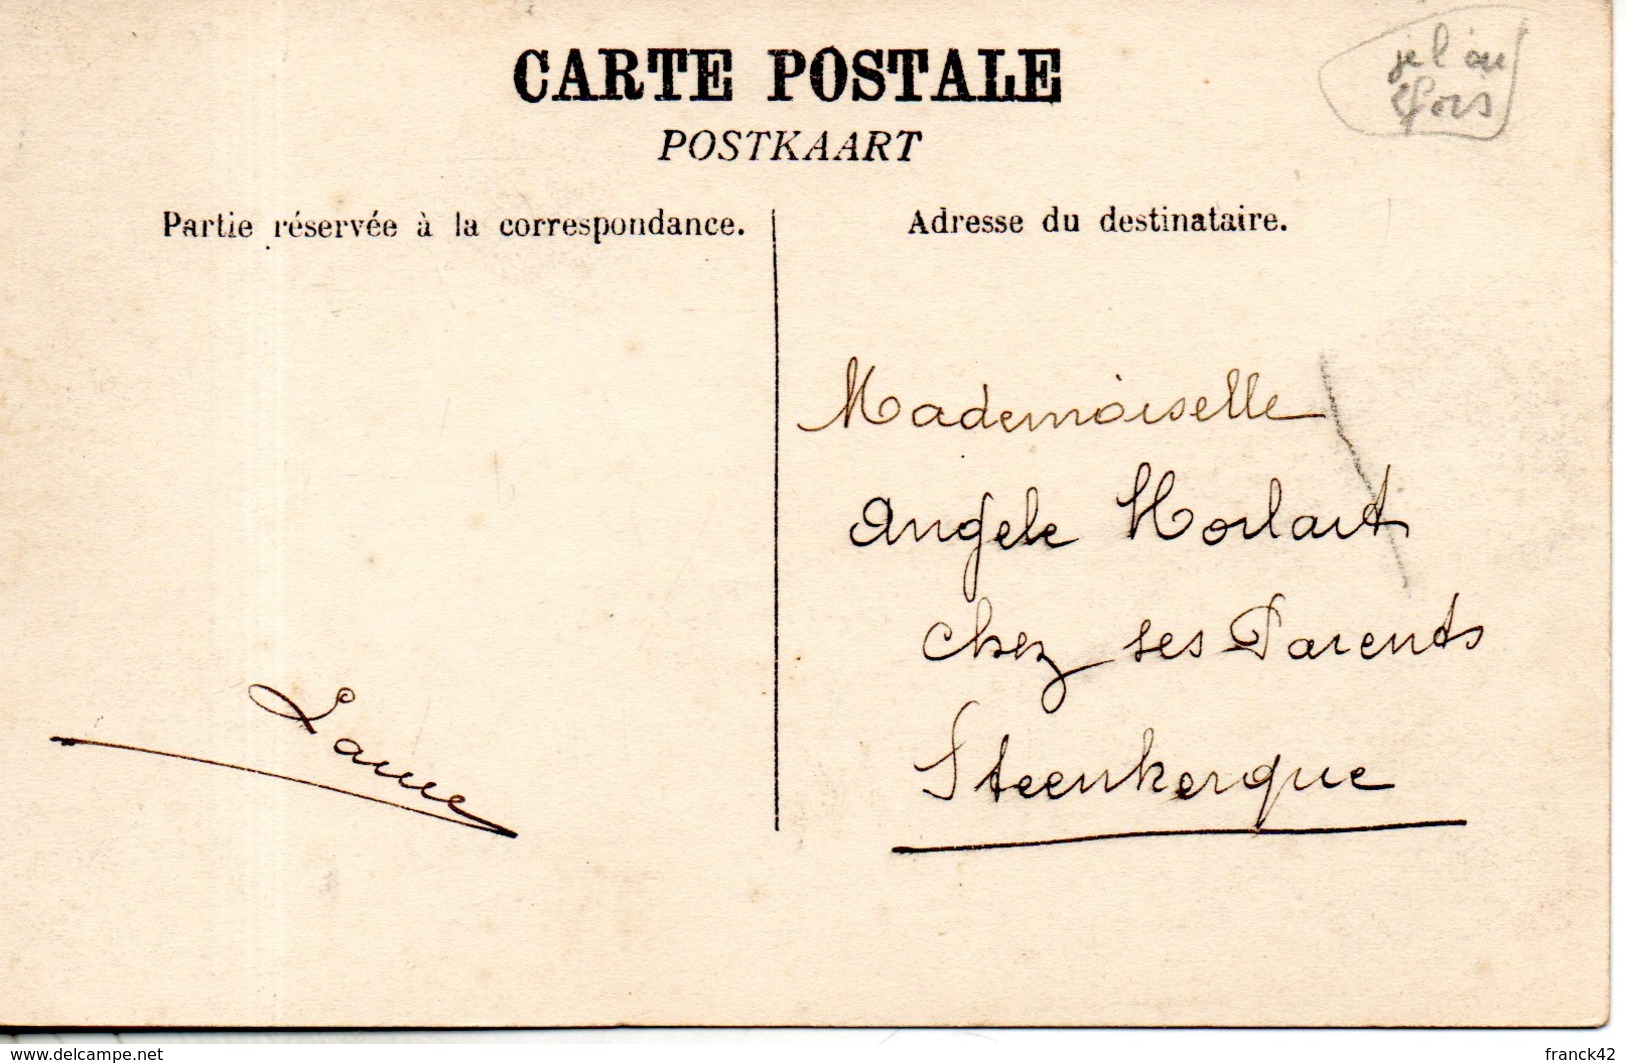 CARTE POSTALE
POSTKAART
Partie réservée à la correspondance.
Adresse du destinataire.
je l'ai
fois
Mademoiselle
Angele Horlait
chez ses Parents
Steenkerque
Laure
www.delcampe.net
franck42